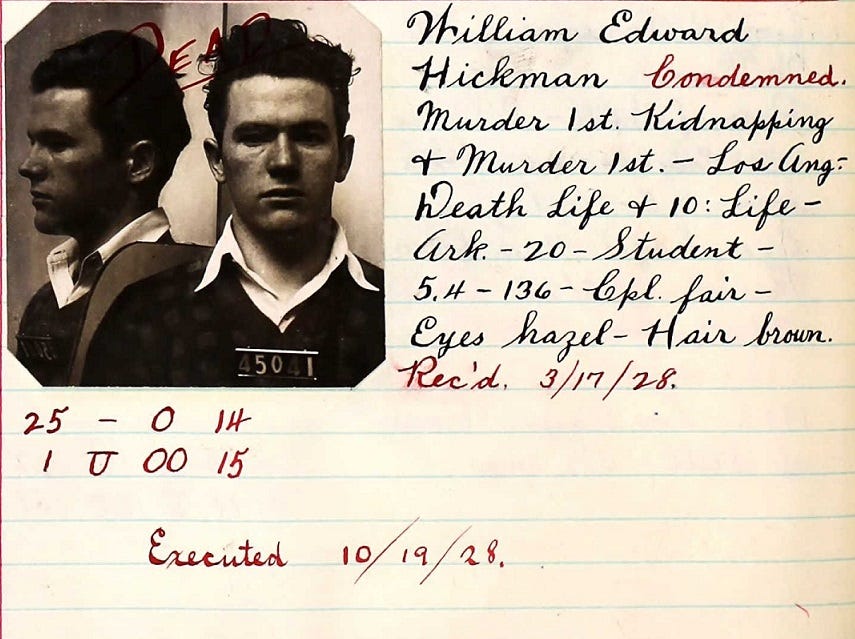 DEAD
45041
William Edward
Hickman Condemned.
Murder 1st. Kidnapping
& Murder 1st. – Los Ang-
Death Life & 10: Life –
Ark. – 20 – Student –
5.4 – 136 – Cpl. fair –
Eyes hazel – Hair brown.
Rec'd. 3/17/28.
25 – O 14
1 U OO 15
Executed 10/19/28.